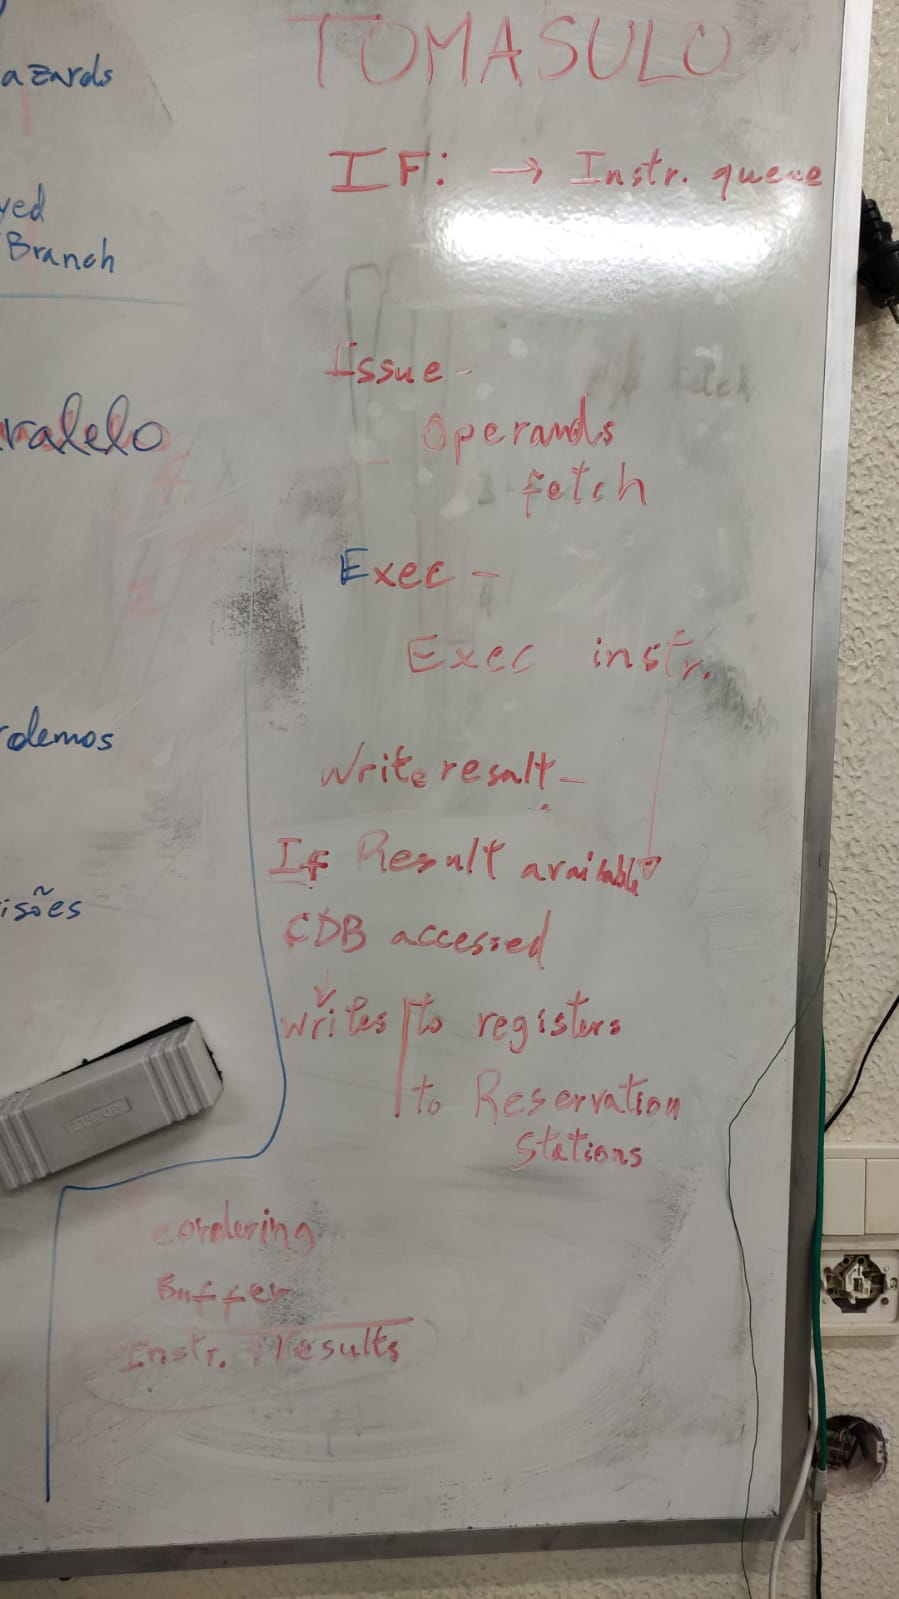 azards
yed
Branch
ralelo
rdemos
isões
TOMASULO
IF: → Instr. queue
Issue -
Operands
fetch
Exec -
Exec instr.
Write resalt -
If Result available
CDB accessed
writes to registers
to Reservation
Stations
eordering
Buffer
Instr. results